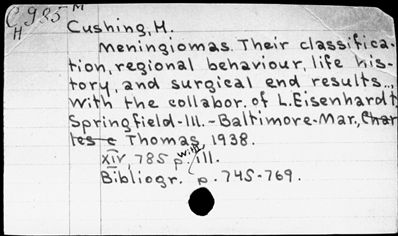 C985 M
H
Cushing, H.
Meningiomas. Their classifica-
tion, regional behaviour, life his-
tory, and surgical end results...
With the collabor. of L. Eisenhardt.
Springfield-Ill.-Baltimore-Mar., Char
les c Thomas, 1938.
XIV, 785 p. with ill.
Bibliogr. p. 745-769.